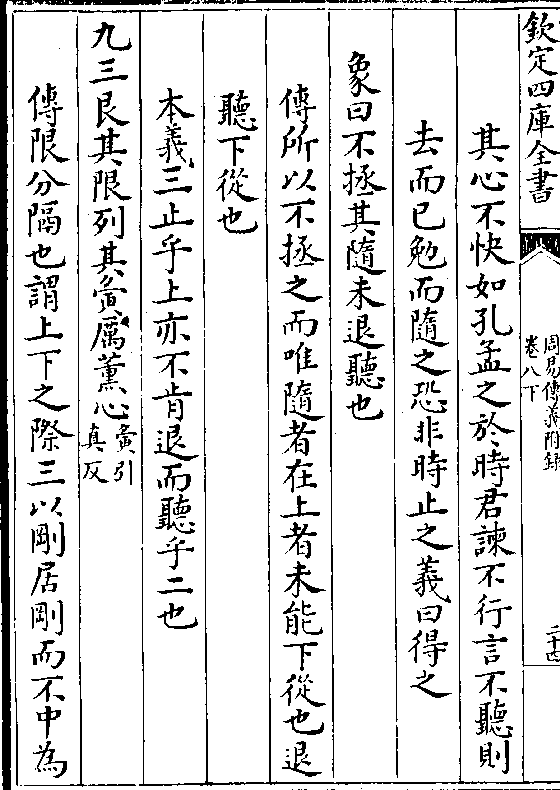 欽定四庫全書
周易傳義附錄
卷八下
二十四
其心不快如孔孟之於時君諫不行言不聽則
去而已勉而隨之恐非時止之義曰得之
象曰不拯其隨未退聽也
傳所以不拯之而唯隨者在上者未能下從也退
聽下從也
本義三止乎上亦不肯退而聽乎二也
九三艮其限列其夤厲薰心夤引真反
傳限分隔也謂上下之際三以剛居剛而不中為